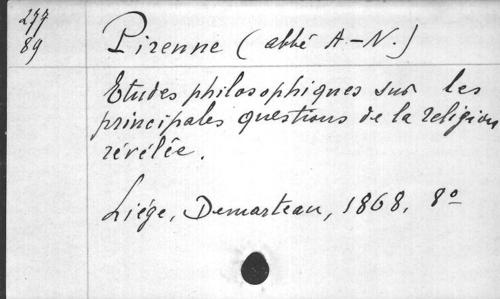 277
89
Pirenne (abbé A-N.)
Etudes philosophiques sur les
principales questions de la religion
révélée.
Liége, Demarteau, 1868, 8º